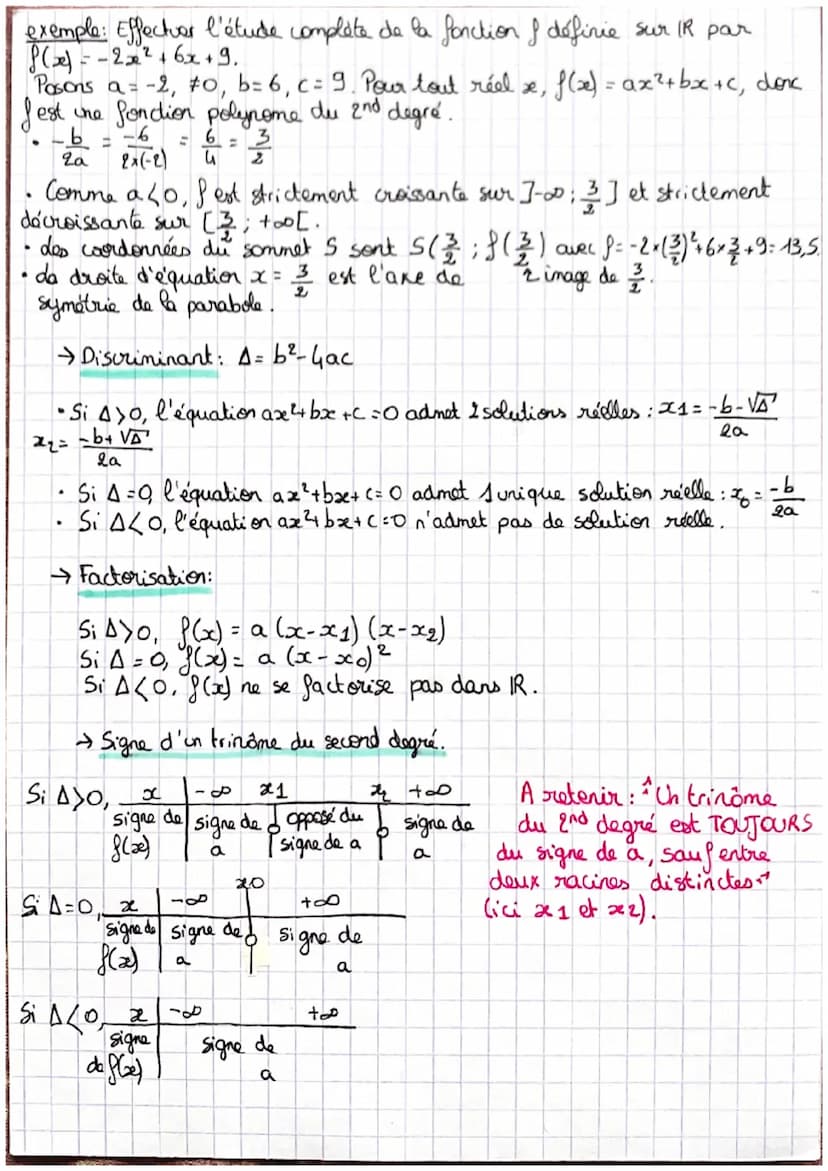 exemple: Effectuer l'étude complète de la fonction f définie sur IR par
f(x) = -2x² + 6x + 9.
Posons a = -2, ≠0, b = 6, c = 9. Pour tout réel x, f(x) = ax² + bx + c, donc
f est une fonction polynome du 2nd degré.
• -b/2a = -6/2×(-2) = 6/4 = 3/2
• Comme a<0, f est strictement croissante sur ]-∞; 3/2] et strictement
décroissante sur [3/2; +∞[.
• Les coordonnées du sommet S sont S(3/2 ; f(3/2) avec f = -2×(3/2)²+6×3/2+9 = 13,5.
• La droite d'équation x = 3/2 est l'axe de
↳ image de 3/2.
symétrie de la parabole.
→ Discriminant: Δ = b² - 4ac
• Si Δ>0, l'équation ax²+bx+c=0 admet 2 solutions réelles : x1 = -b-√Δ/2a
x2 = -b+√Δ/2a
• Si Δ=0, l'équation ax²+bx+c=0 admet 1 unique solution réelle : x0 = -b/2a
• Si Δ<0, l'équation ax²+bx+c=0 n'admet pas de solution réelle.
→ Factorisation:
Si Δ>0, f(x) = a (x-x1) (x-x2)
Si Δ=0, f(x) = a (x-x0)²
Si Δ<0, f(x) ne se factorise pas dans IR.
→ Signe d'un trinôme du second degré.
Si Δ>0, x -∞ x1 x2 +∞
signe de f(x) signe de a 0 opposé du signe de a 0 signe de a
A retenir : "Un trinôme
du 2nd degré est TOUJOURS
du signe de a, sauf entre
deux racines distinctes"
(ici x1 et x2).
Si Δ=0, x -∞ x0 +∞
signe de f(x) signe de a 0 signe de a
Si Δ<0, x -∞ +∞
signe de f(x) signe de a